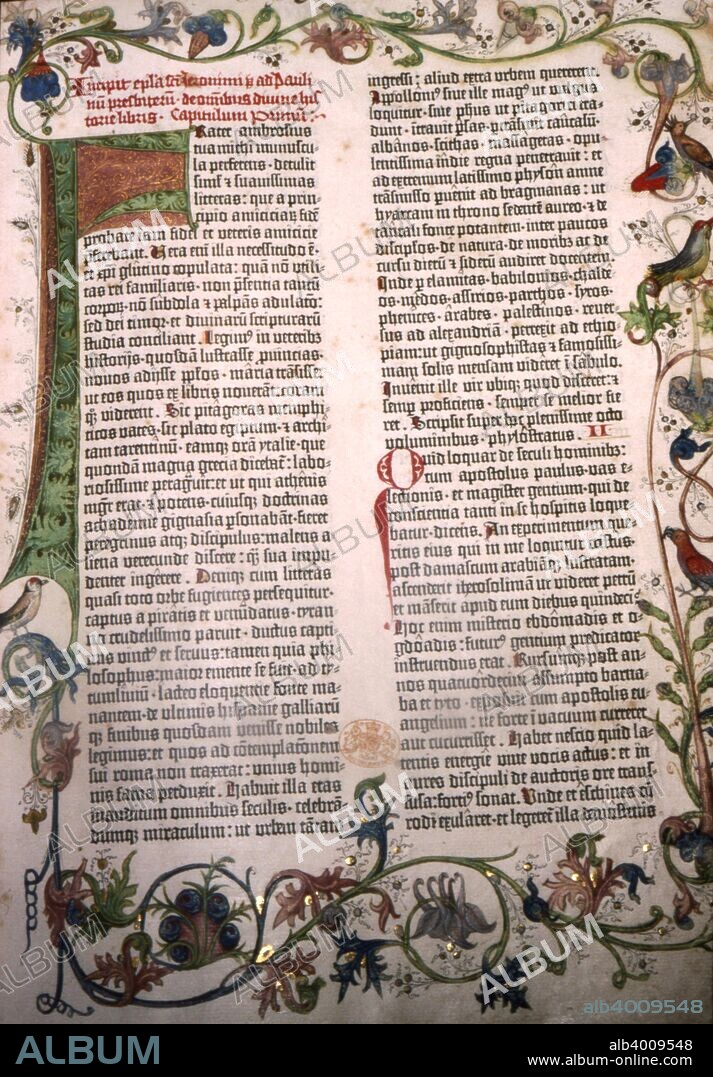 Incipit epla sci Jeronimi ad Pauli
nū presbiterū · de omnibus divine his
torie libris · Capitulum Primū ·
Frater ambrosius
tua michi munuscu
la perferens · detulit
simul et suavissimas
litteras: que a prin
cipio amiciciarum fidē
probate iam fidei et veteris amicicie
preferebant. Vera enī illa necessitudo ē·
et xpi glutino copulata: quam non vtili-
tas rei familiaris · non presentia tantū
corporū · non subdola et palpans adulatō:
sed dei timor · et divinarū scripturarū
studia conciliant. Legimus in veteribus
historijs · quosdam lustrasse provincias·
novos adijsse pplos · maria transisse:
ut eos quos ex libris noverant: coram
quoque viderent. Sic pitagoras memphi-
ticos vates · sic plato egiptum · et archi-
tam tarentinū · eamque oram ytalie · que
quondam magna grecia dicebat: labo-
riosissime peragravit: et ut qui athenis
mgr erat · et potens · cuiusque doctrinas
achademie gignasia personabāt · fieret
peregrinus atque discipulus: malens a-
liena verecunde discere: quam sua impu-
denter ingerere. Denique cum litteras
quasi toto orbe fugientes persequitur·
captus a piratis et venundatus · tyran-
no crudelissimo paruit · ductus capti-
vus vinctus et servus: tamen quia phi-
losophus: maior emente se fuit · ad ty-
tumlivium · lacteo eloquentie fonte ma-
nantem · de ultimis hispanie galliarū
que finibus quosdam venisse nobiles
legimus: et quos ad contemplationem
sui roma non traxerat: unius homi-
nis fama perduxit. Habuit illa etas
inauditum omnibus seculis · celebran-
dumque miraculum: ut urbem tantam
ingressi: aliud extra urbem quererent.
Appollonius sive ille magus ut vulgus
loquitur · sive phus ut pitagorici tra-
dunt · intravit persas · pertransivit caucasū·
albanos · scithas · massagetas · opu
lentissima indie regna penetravit: et
ad extremum latissimo physon amne
transmisso pervenit ad bragmanas: ut
hyarcam in throno sedentē aureo · et de
tantali fonte potantem · inter paucos
discipulos · de natura · de moribus ac de
cursu dierū et siderū audiret docentem.
Inde per elamitas · babilonios · chalde-
os · medos · assirios · parthos · syros·
phenices · arabes · palestinos · rever
sus ad alexandriam · perrexit ad ethio
piam: ut gignosophistas et famosissi-
mam solis mensam videret in sabulo.
Invenit ille vir ubique quod disceret: et
semper proficiens · semper se melior fie
ret. Scripsit super hoc plenissime octo
voluminibus · phylostratus. II
Quid loquar de seculi hominibus:
cum apostolus paulus · vas e-
lectionis · et magister gentium · qui de
conscientia tanti in se hospitis loque
batur · dicens. An experimentum que-
ritis eius qui in me loquitur cristus·
post damascum arabiamque lustratam·
ascenderit iherosolimam ut videret petrū
et manserit apud eum diebus quindeci
Hoc enim misterio ebdomadis et o-
gdoadis: futurus gentium predicator
instruendus erat. Rursumque post an-
nos quatuordecim · assumpto barna-
ba et tyto · exposuit cum apostolis eu-
angelium: ne forte in vacuum curreret
aut cucurrisset. Habet nescio quid la-
tentis energie vive vocis actus: et in
aures discipuli de auctoris ore trans-
fusa: fortius sonat. Unde et eschines cū
rodi exularet · et legeretur illa demostenis
ALBUM
alb4009548
ALBUM
alb4009548
www.album-online.com